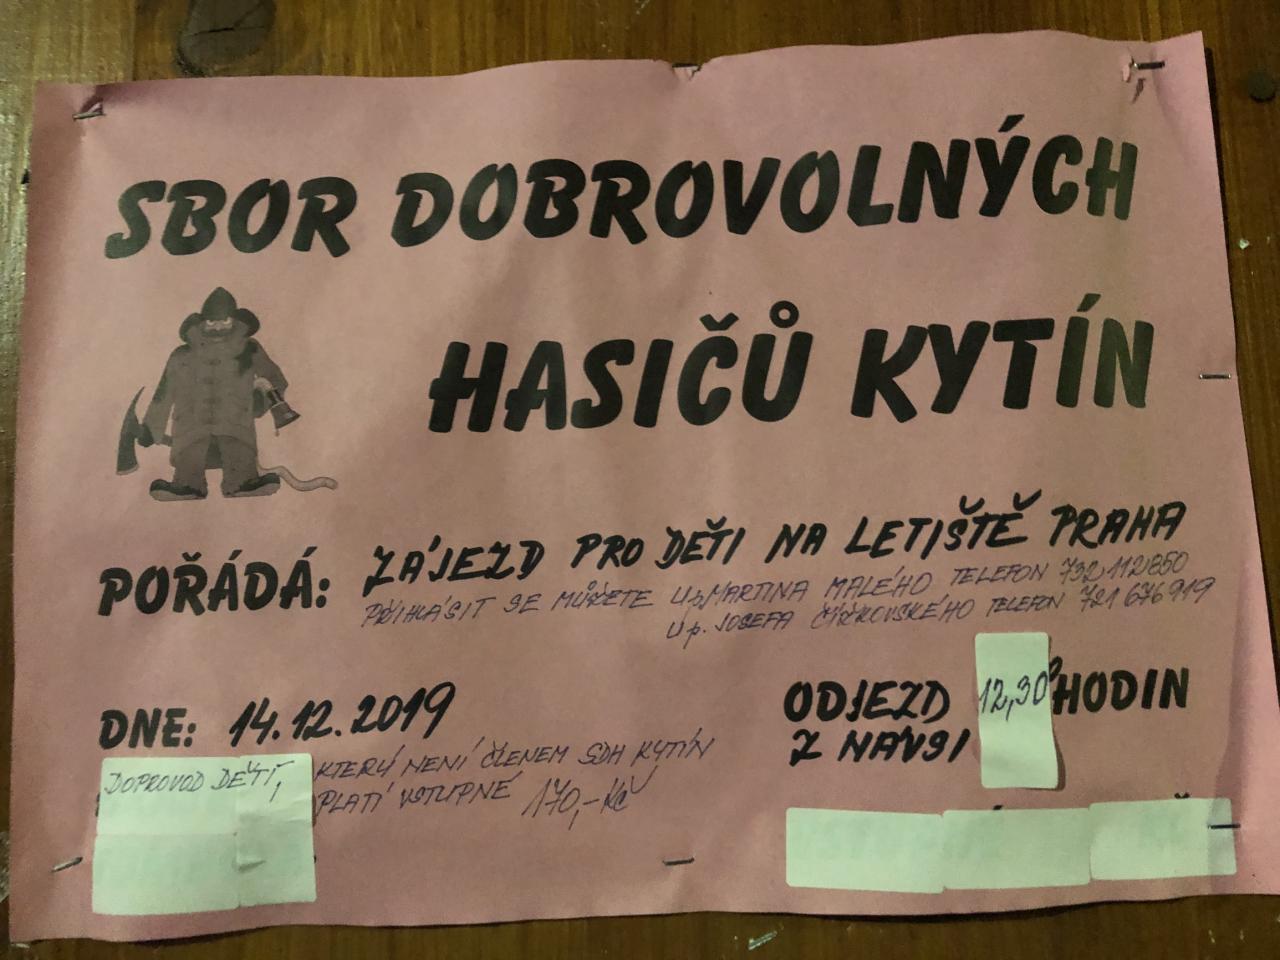 SBOR DOBROVOLNÝCH
HASIČŮ KYTÍN
POŘÁDÁ: ZÁJEZD PRO DĚTI NA LETIŠTĚ PRAHA
PŘIHLÁSIT SE MŮŽETE U p. MARTINA MALÉHO TELEFON 732 112 850
U p. JOSEFA ČÍŽKOVSKÉHO TELEFON 721 676 919
DNE: 14.12.2019
ODJEZD 12,30 HODIN
Z NÁVSI
DOPROVOD DĚTÍ, KTERÝ NENÍ ČLENEM SDH KYTÍN
PLATÍ VSTUPNÉ 170,- Kč